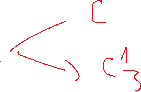 C
C 1/3